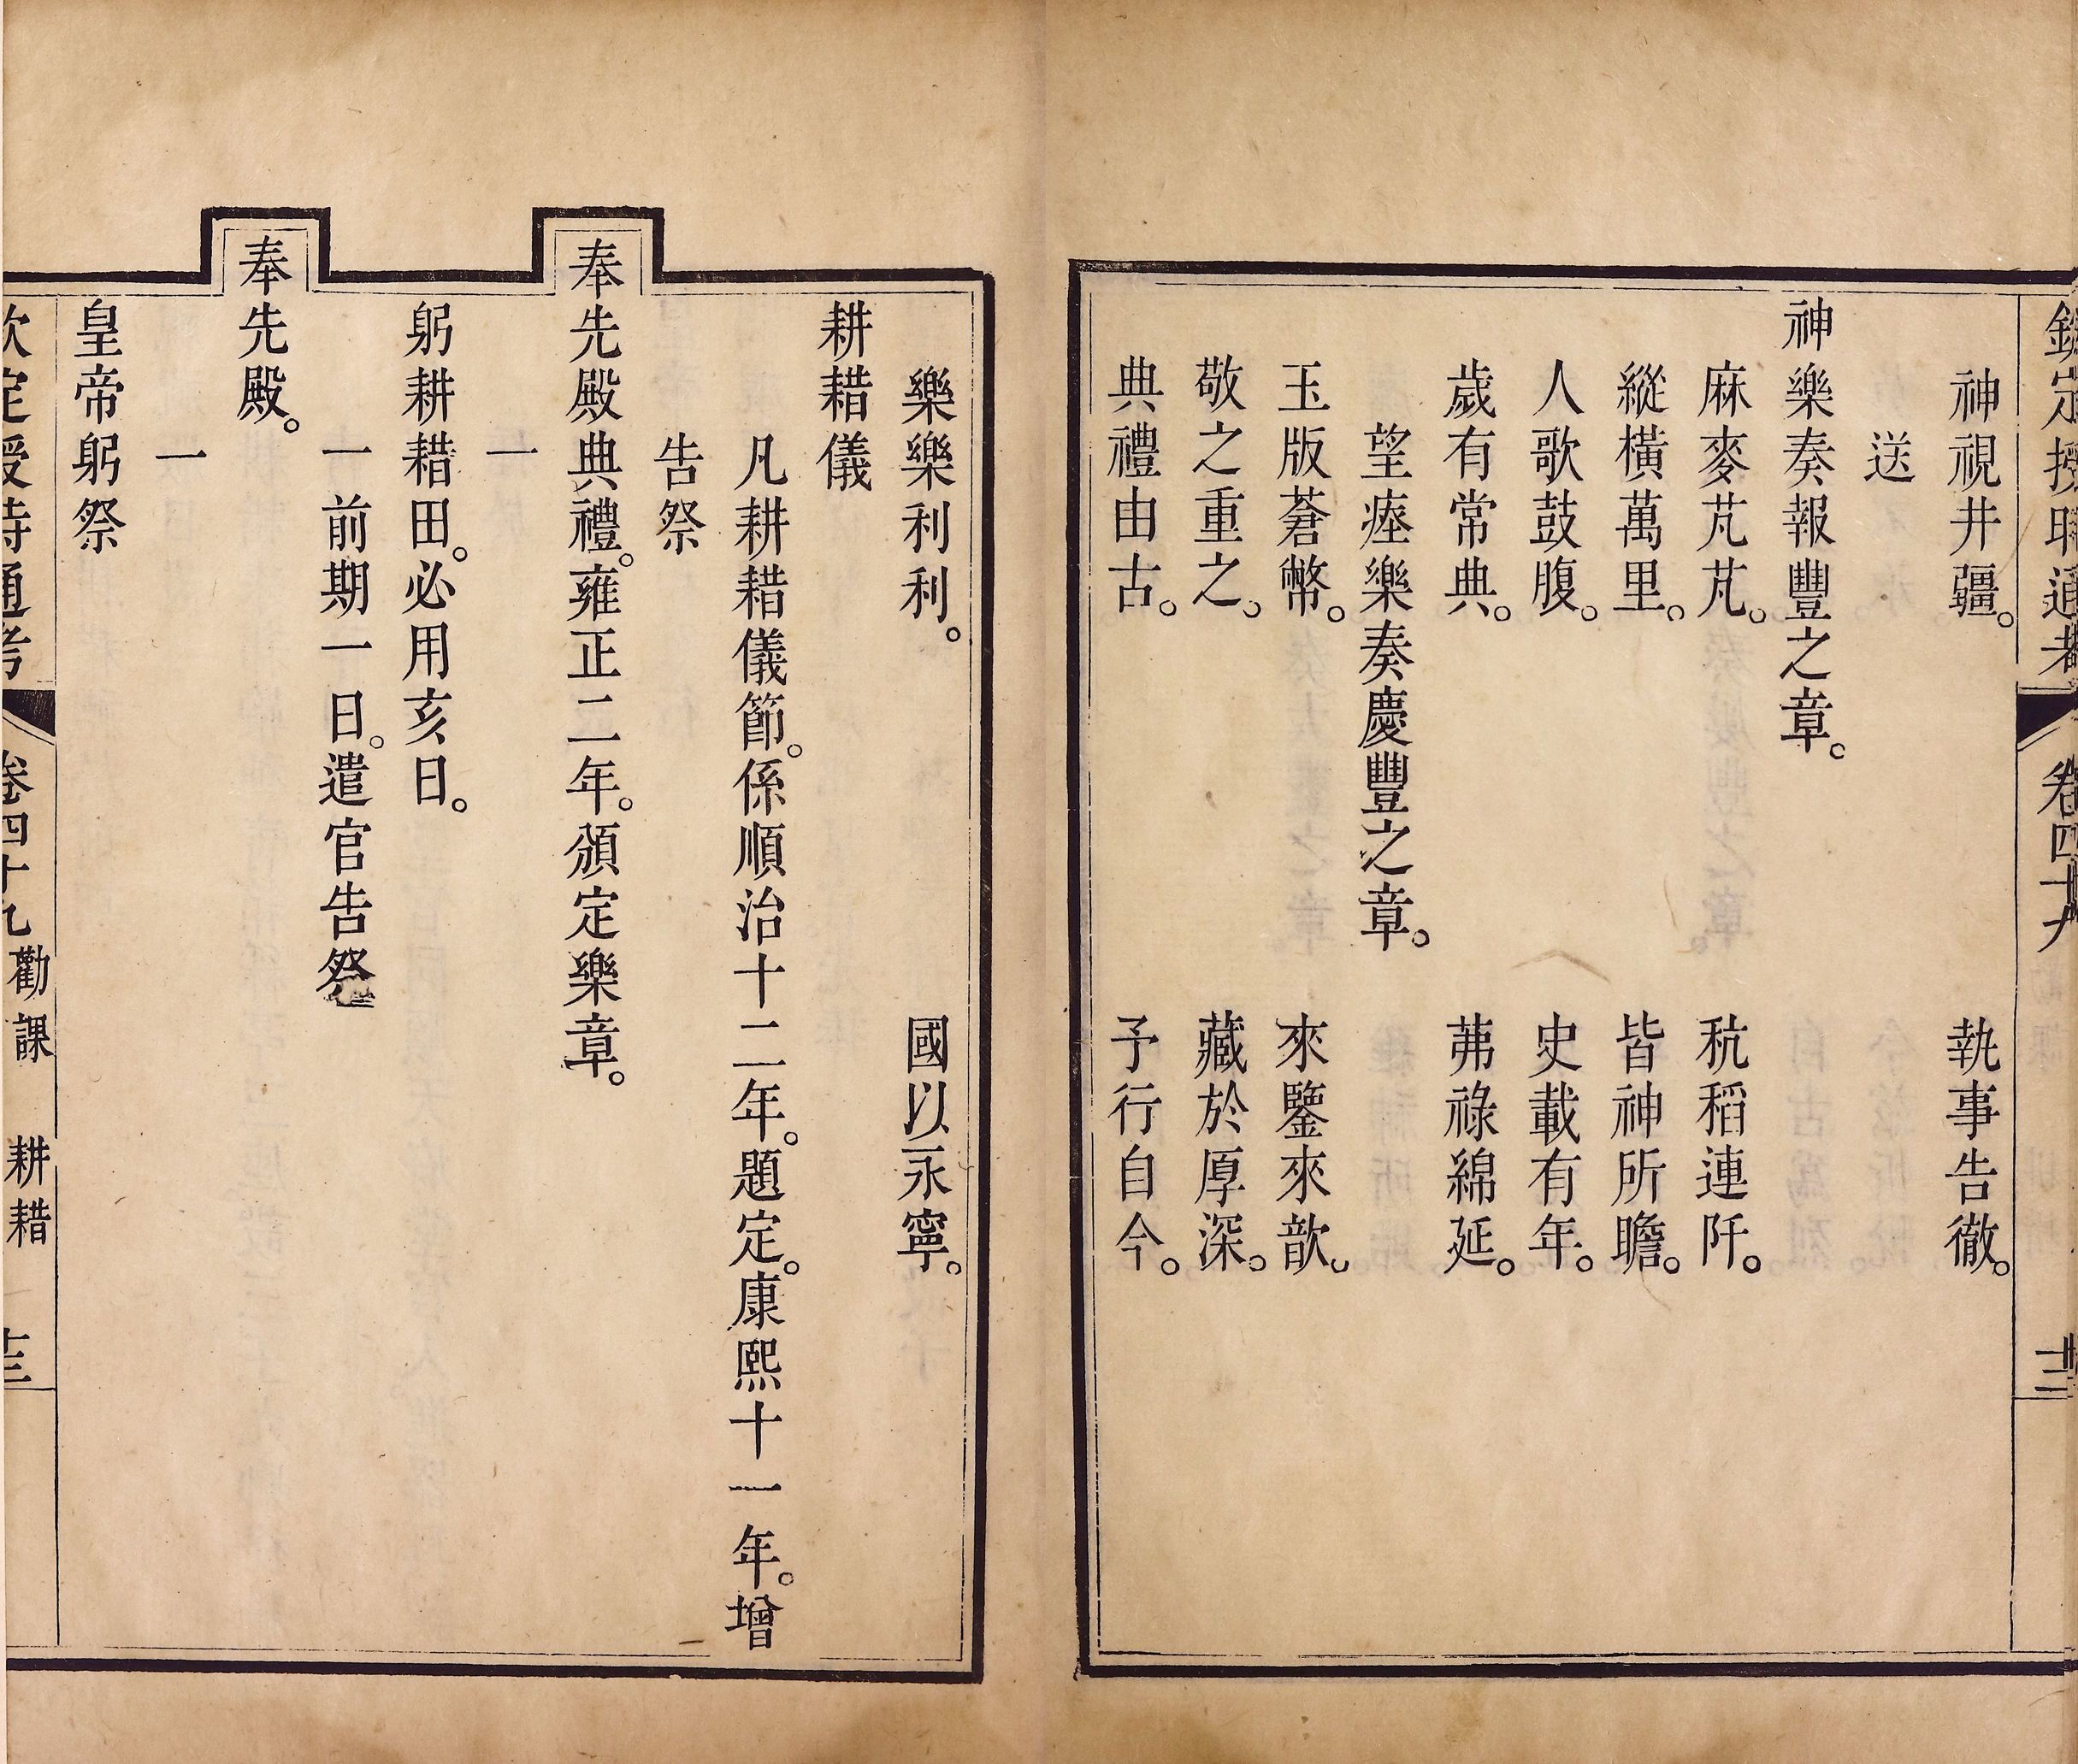 欽定授時通考 卷四十九 十二
神視井疆。 執事告徹。
送
神樂奏報豐之章。
麻麥芃芃。 秔稻連阡。
縱橫萬里。 皆神所瞻。
人歌鼓腹。 史載有年。
歲有常典。 茀祿綿延。
望瘞樂奏慶豐之章。
玉版蒼幣。 來鑒來歆。
敬之重之。 藏於厚深。
典禮由古。 予行自今。
樂樂利利。 國以永寧。
耕耤儀
凡耕耤儀節。係順治十二年。題定。康熙十一年。增
告祭
奉先殿典禮。雍正二年。頒定樂章。
一
躬耕耤田。必用亥日。
一前期一日。遣官告祭
奉先殿。
一
皇帝躬祭
欽定授時通考 卷四十九 勸課 耕耤 十三